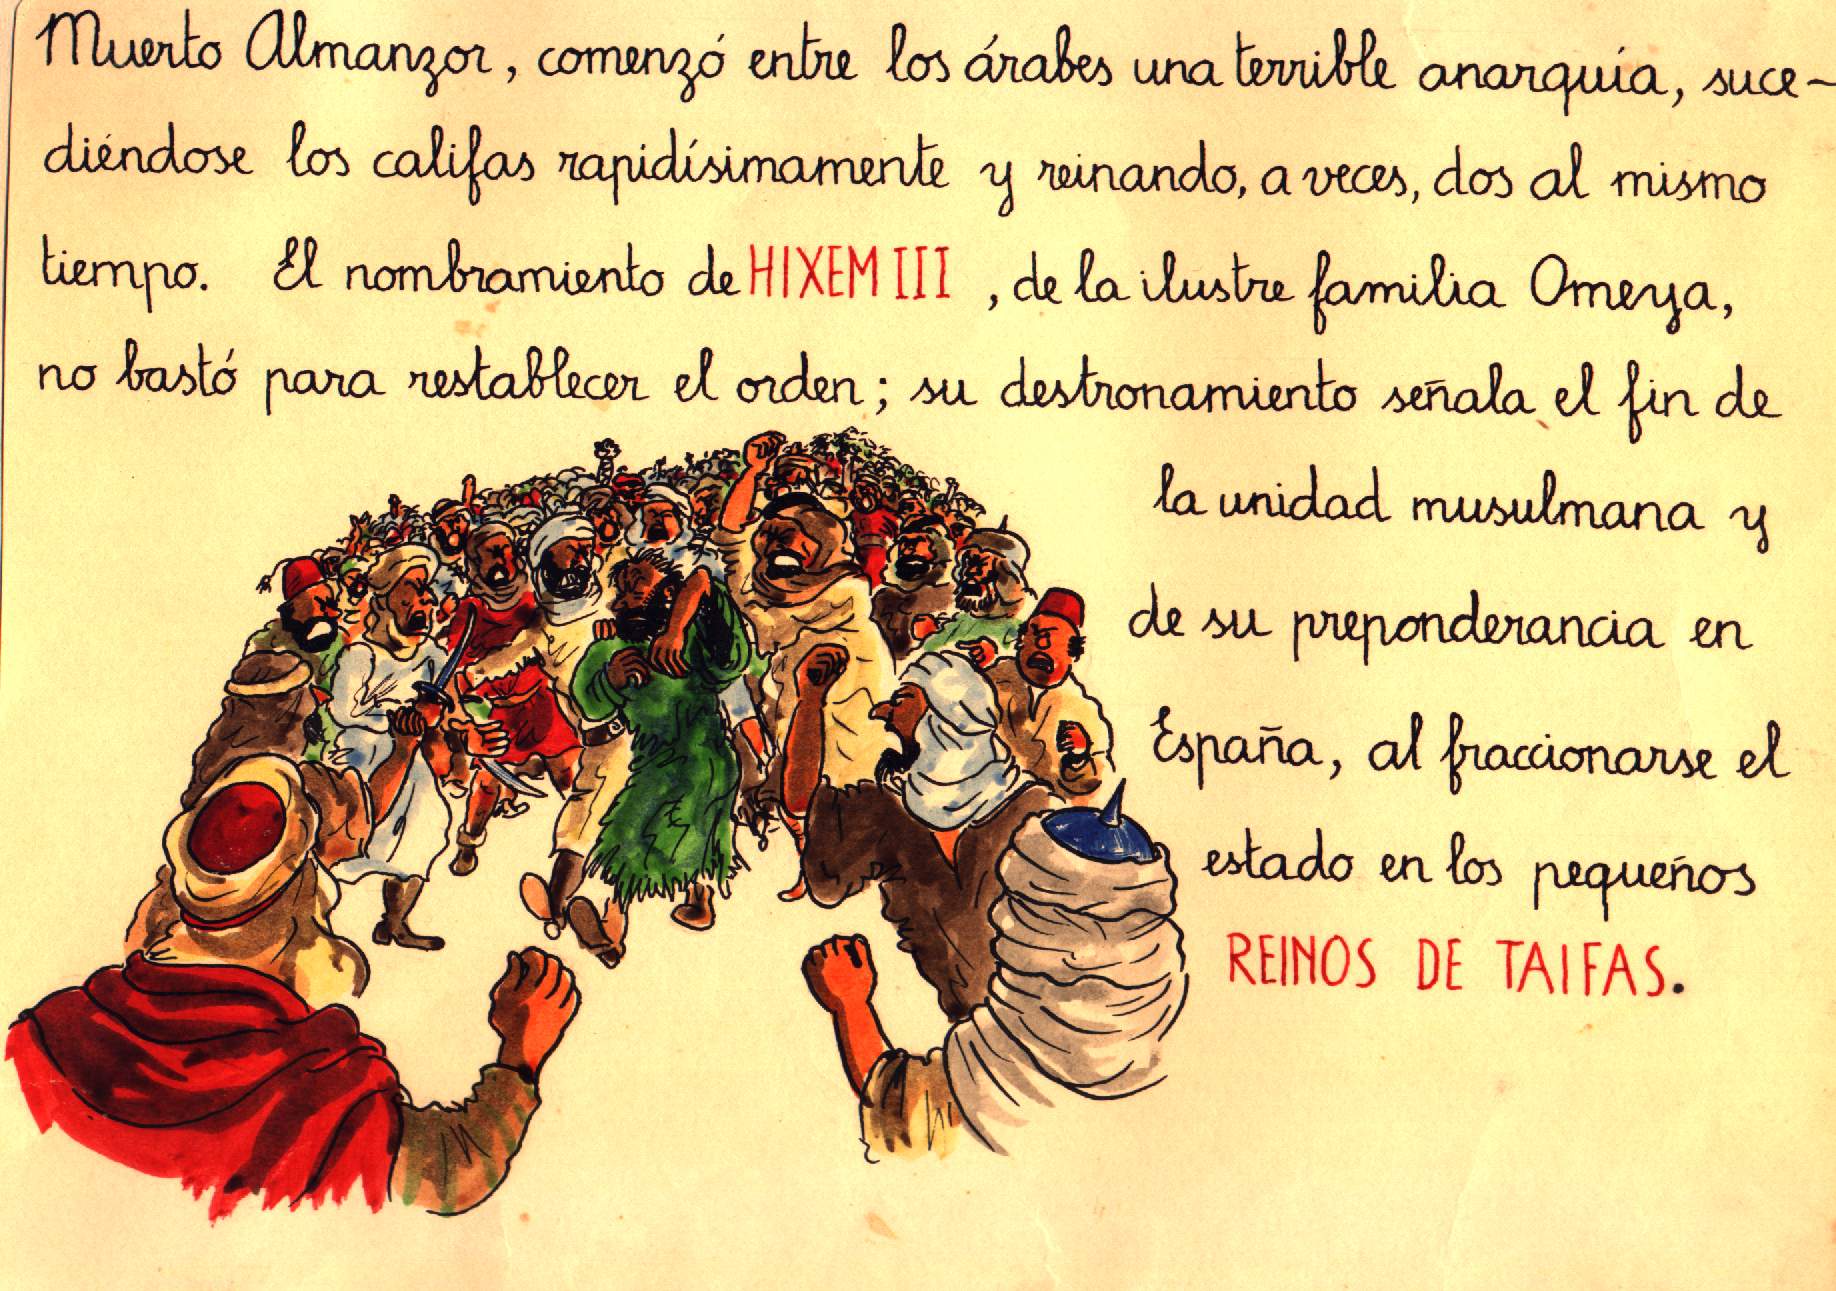 Muerto Almanzor, comenzó entre los árabes una terrible anarquía, suce-
diéndose los califas rapidísimamente y reinando, a veces, dos al mismo
tiempo. El nombramiento de HIXEM III , de la ilustre familia Omeya,
no bastó para restablecer el orden; su destronamiento señala el fin de
la unidad musulmana y
de su preponderancia en
España, al fraccionarse el
estado en los pequeños
REINOS DE TAIFAS.